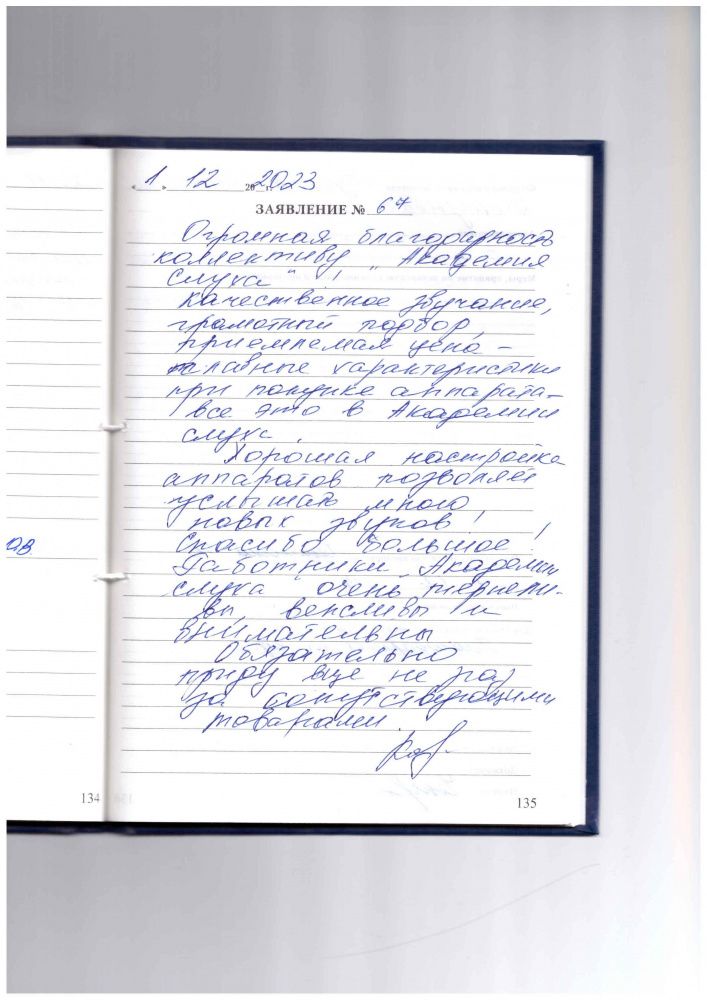 « 1 » 12 20 2023 г.
ЗАЯВЛЕНИЕ № 67
Огромная благодарность
коллективу „Академия
слуха“,
качественное звучание,
грамотный подбор,
приемлемая цена –
главные характеристики
при покупке аппарата –
все это в Академии
слуха.
Хорошая настройка
аппаратов позволяет
услышать много
новых звуков!
Спасибо большое!
Работники Академии
слуха очень терпели-
вы, вежливы и
внимательны
Обязательно
приду еще не раз
за сопутствующими
товарами.
ов
134
135